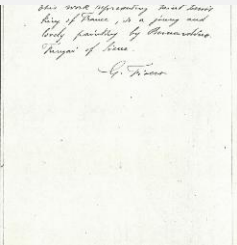 this work representing Saint Louis
King of France, is a          and
lovely painting by Bernardino
Fungai of Siena.
G. Fiocco